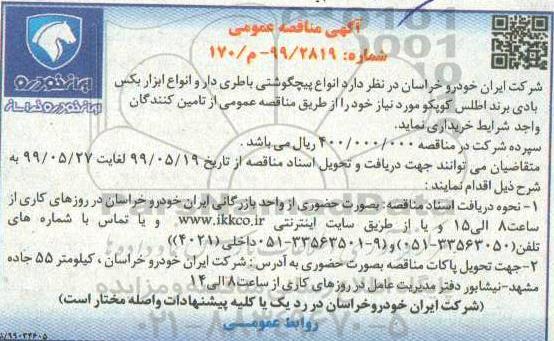 آگهی مناقصه عمومی
شماره: ۹۹/۲۸۱۹- م/۱۷۰
ایران خودرو
ایران خودرو خراسان
شرکت ایران خودرو خراسان در نظر دارد انواع پیچگوشتی باطری دار و انواع ابزار بکس
بادی برند اطلس کوپکو مورد نیاز خود را از طریق مناقصه عمومی از تامین کنندگان
واجد شرایط خریداری نماید.
سپرده شرکت در مناقصه ۴۰۰/۰۰۰/۰۰۰ ریال می باشد .
متقاضیان می توانند جهت دریافت و تحویل اسناد مناقصه از تاریخ ۹۹/۰۵/۱۹ لغایت ۹۹/۰۵/۲۷ به
شرح ذیل اقدام نمایند :
۱- نحوه دریافت اسناد مناقصه: بصورت حضوری از واحد بازرگانی ایران خودرو خراسان در روزهای کاری از
ساعت۸ الی۱۵ و یا از طریق سایت اینترنتی www.ikkco.ir و یا تماس با شماره های
تلفن(۳۳۵۶۳۰۵۰-۰۵۱) و (۹-۳۳۵۶۳۵۰۱-۰۵۱داخلی(۴۰۲۱))
۲-جهت تحویل پاکات مناقصه بصورت حضوری به آدرس : شرکت ایران خودرو خراسان ، کیلومتر ۵۵ جاده
مشهد-نیشابور دفتر مدیریت عامل در روزهای کاری از ساعت۸ الی۱۴
(شرکت ایران خودروخراسان در رد یک یا کلیه پیشنهادات واصله مختار است)
روابط عمومی
۰۲۱-۸۸۳۴۹۶۷۰-۵